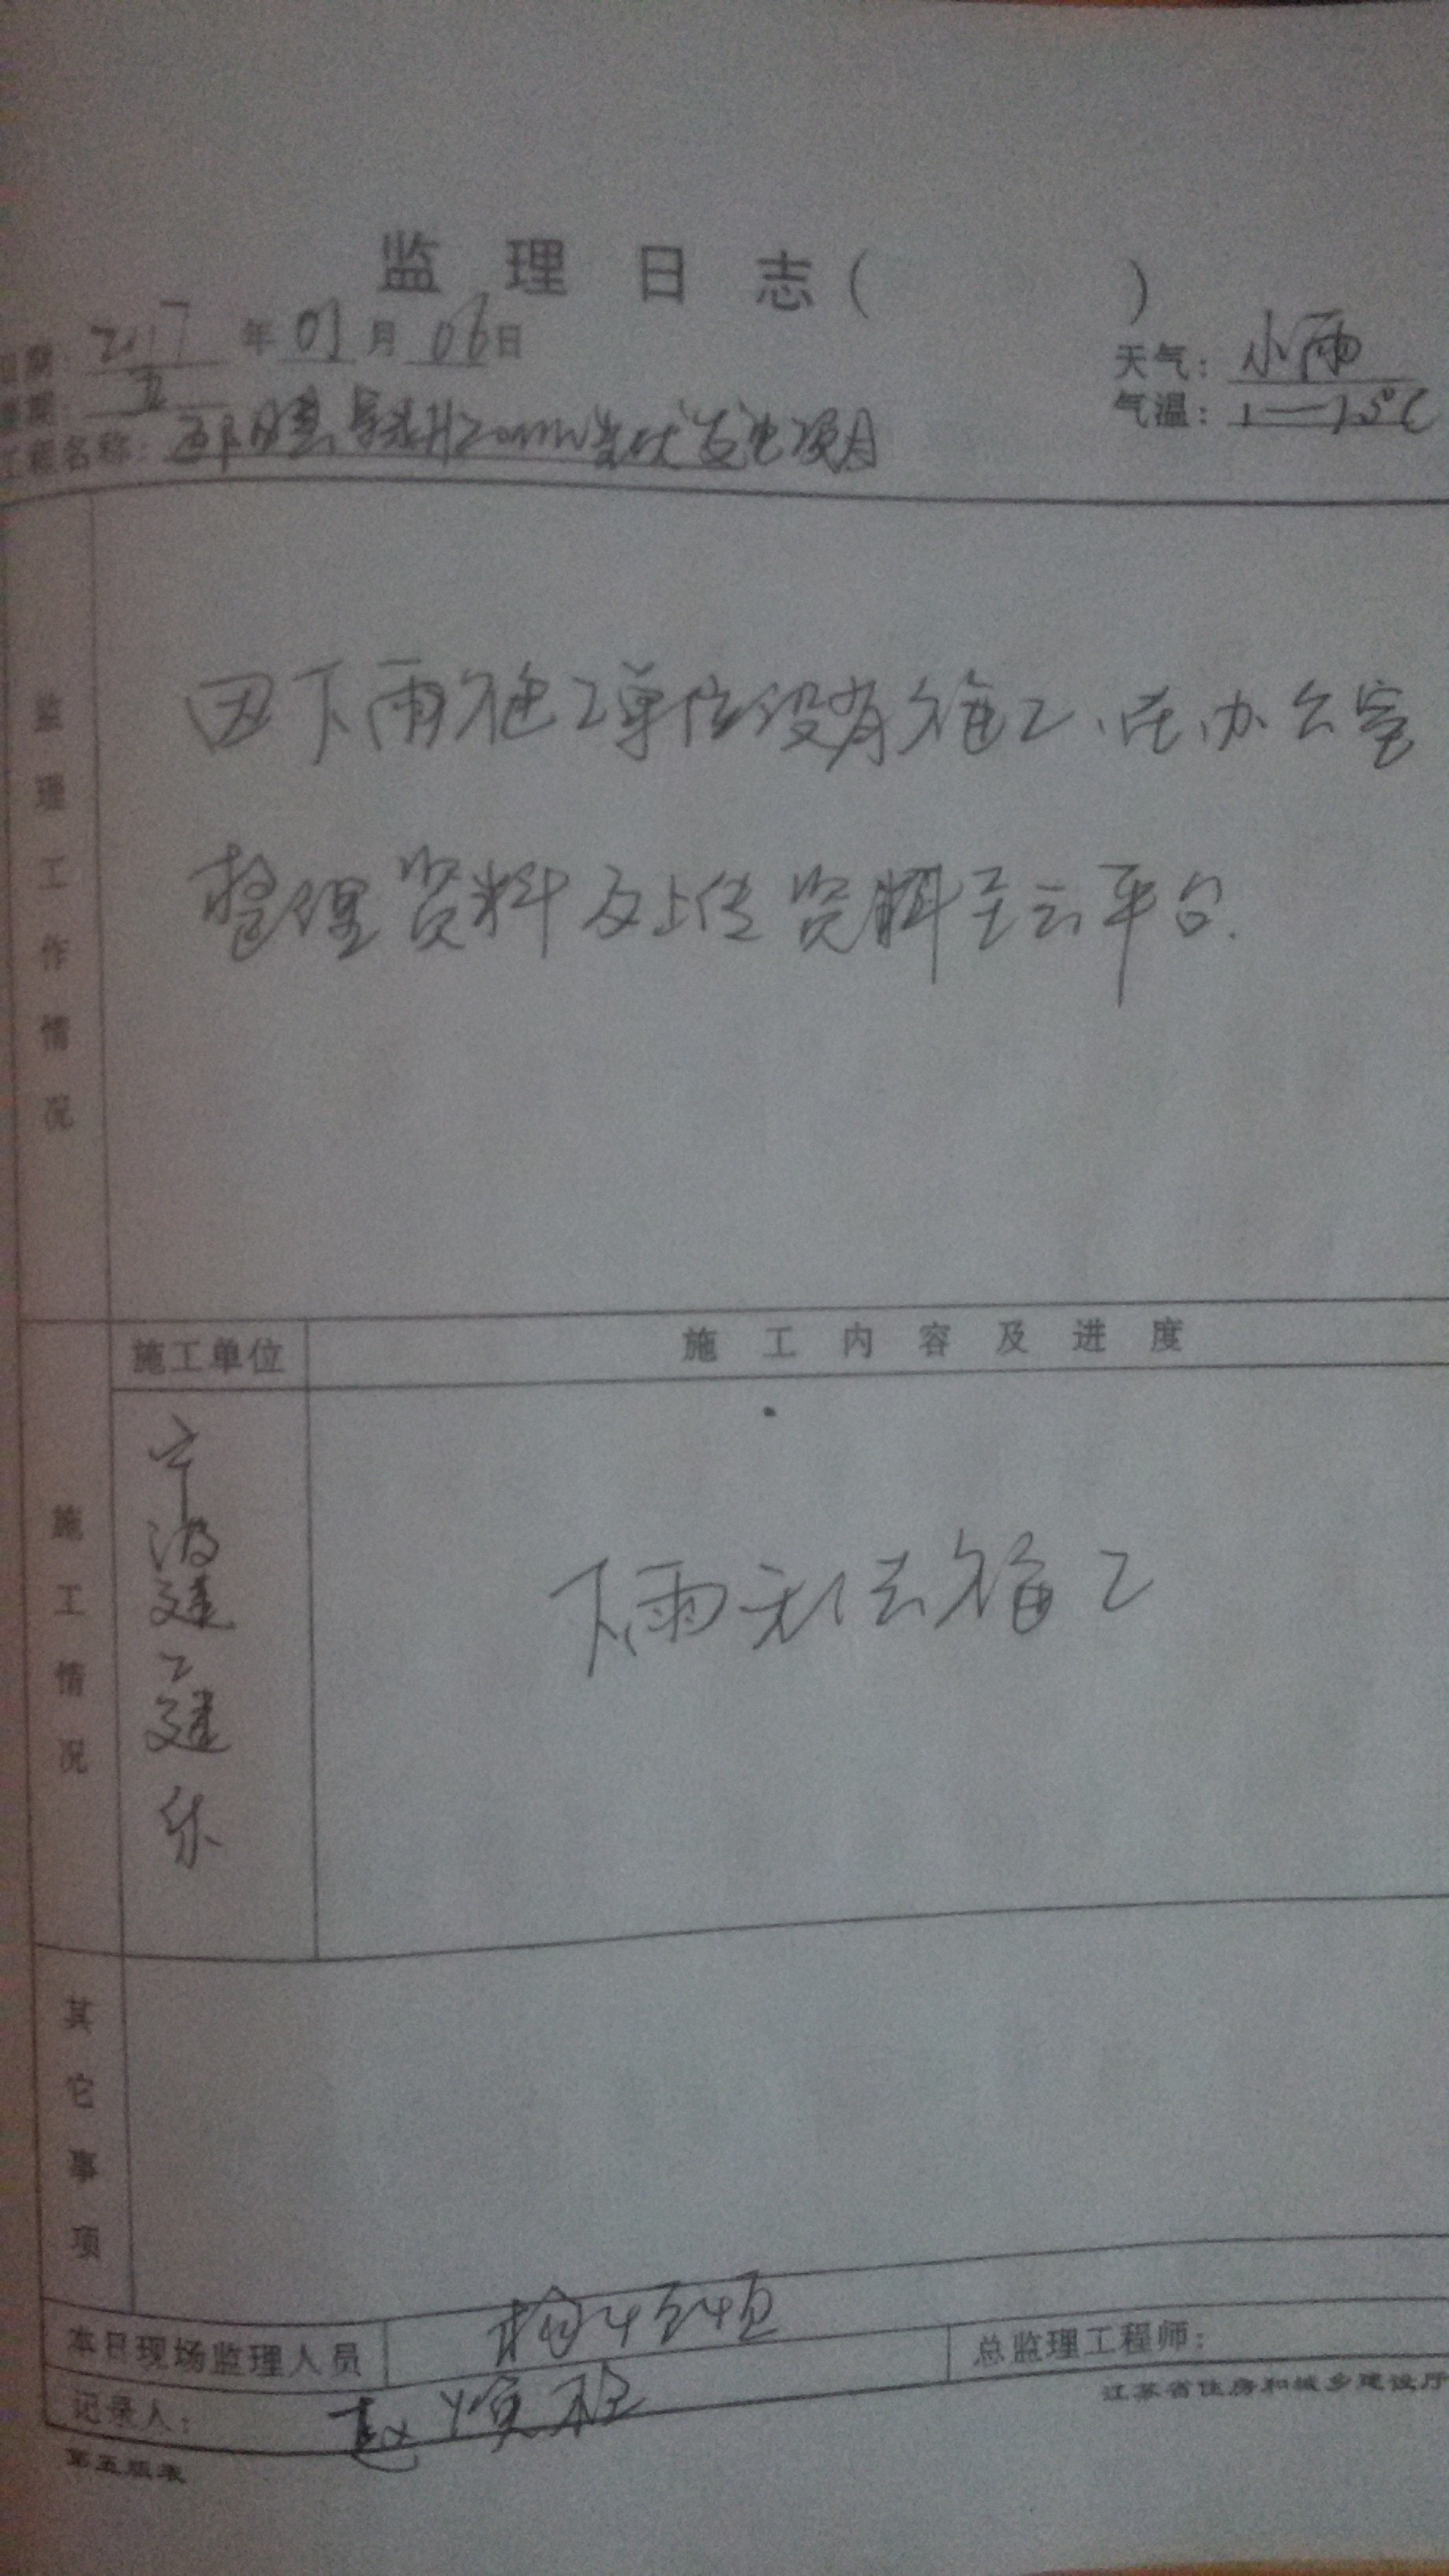 监理日志（ ）
日期：2017年01月06日
天气：小雨
星期：五
气温：1—
工程名称：20mw光伏发电项目
监理工作情况
因下雨施工单位没有施工、在办公室
整理资料及上传资料至云平台.
施工单位
施工内容及进度
施工情况
宁波建工建乐
下雨无法施工
其它事项
本日现场监理人员
总监理工程师：
记录人：赵
江苏省住房和城乡建设厅
第五版表